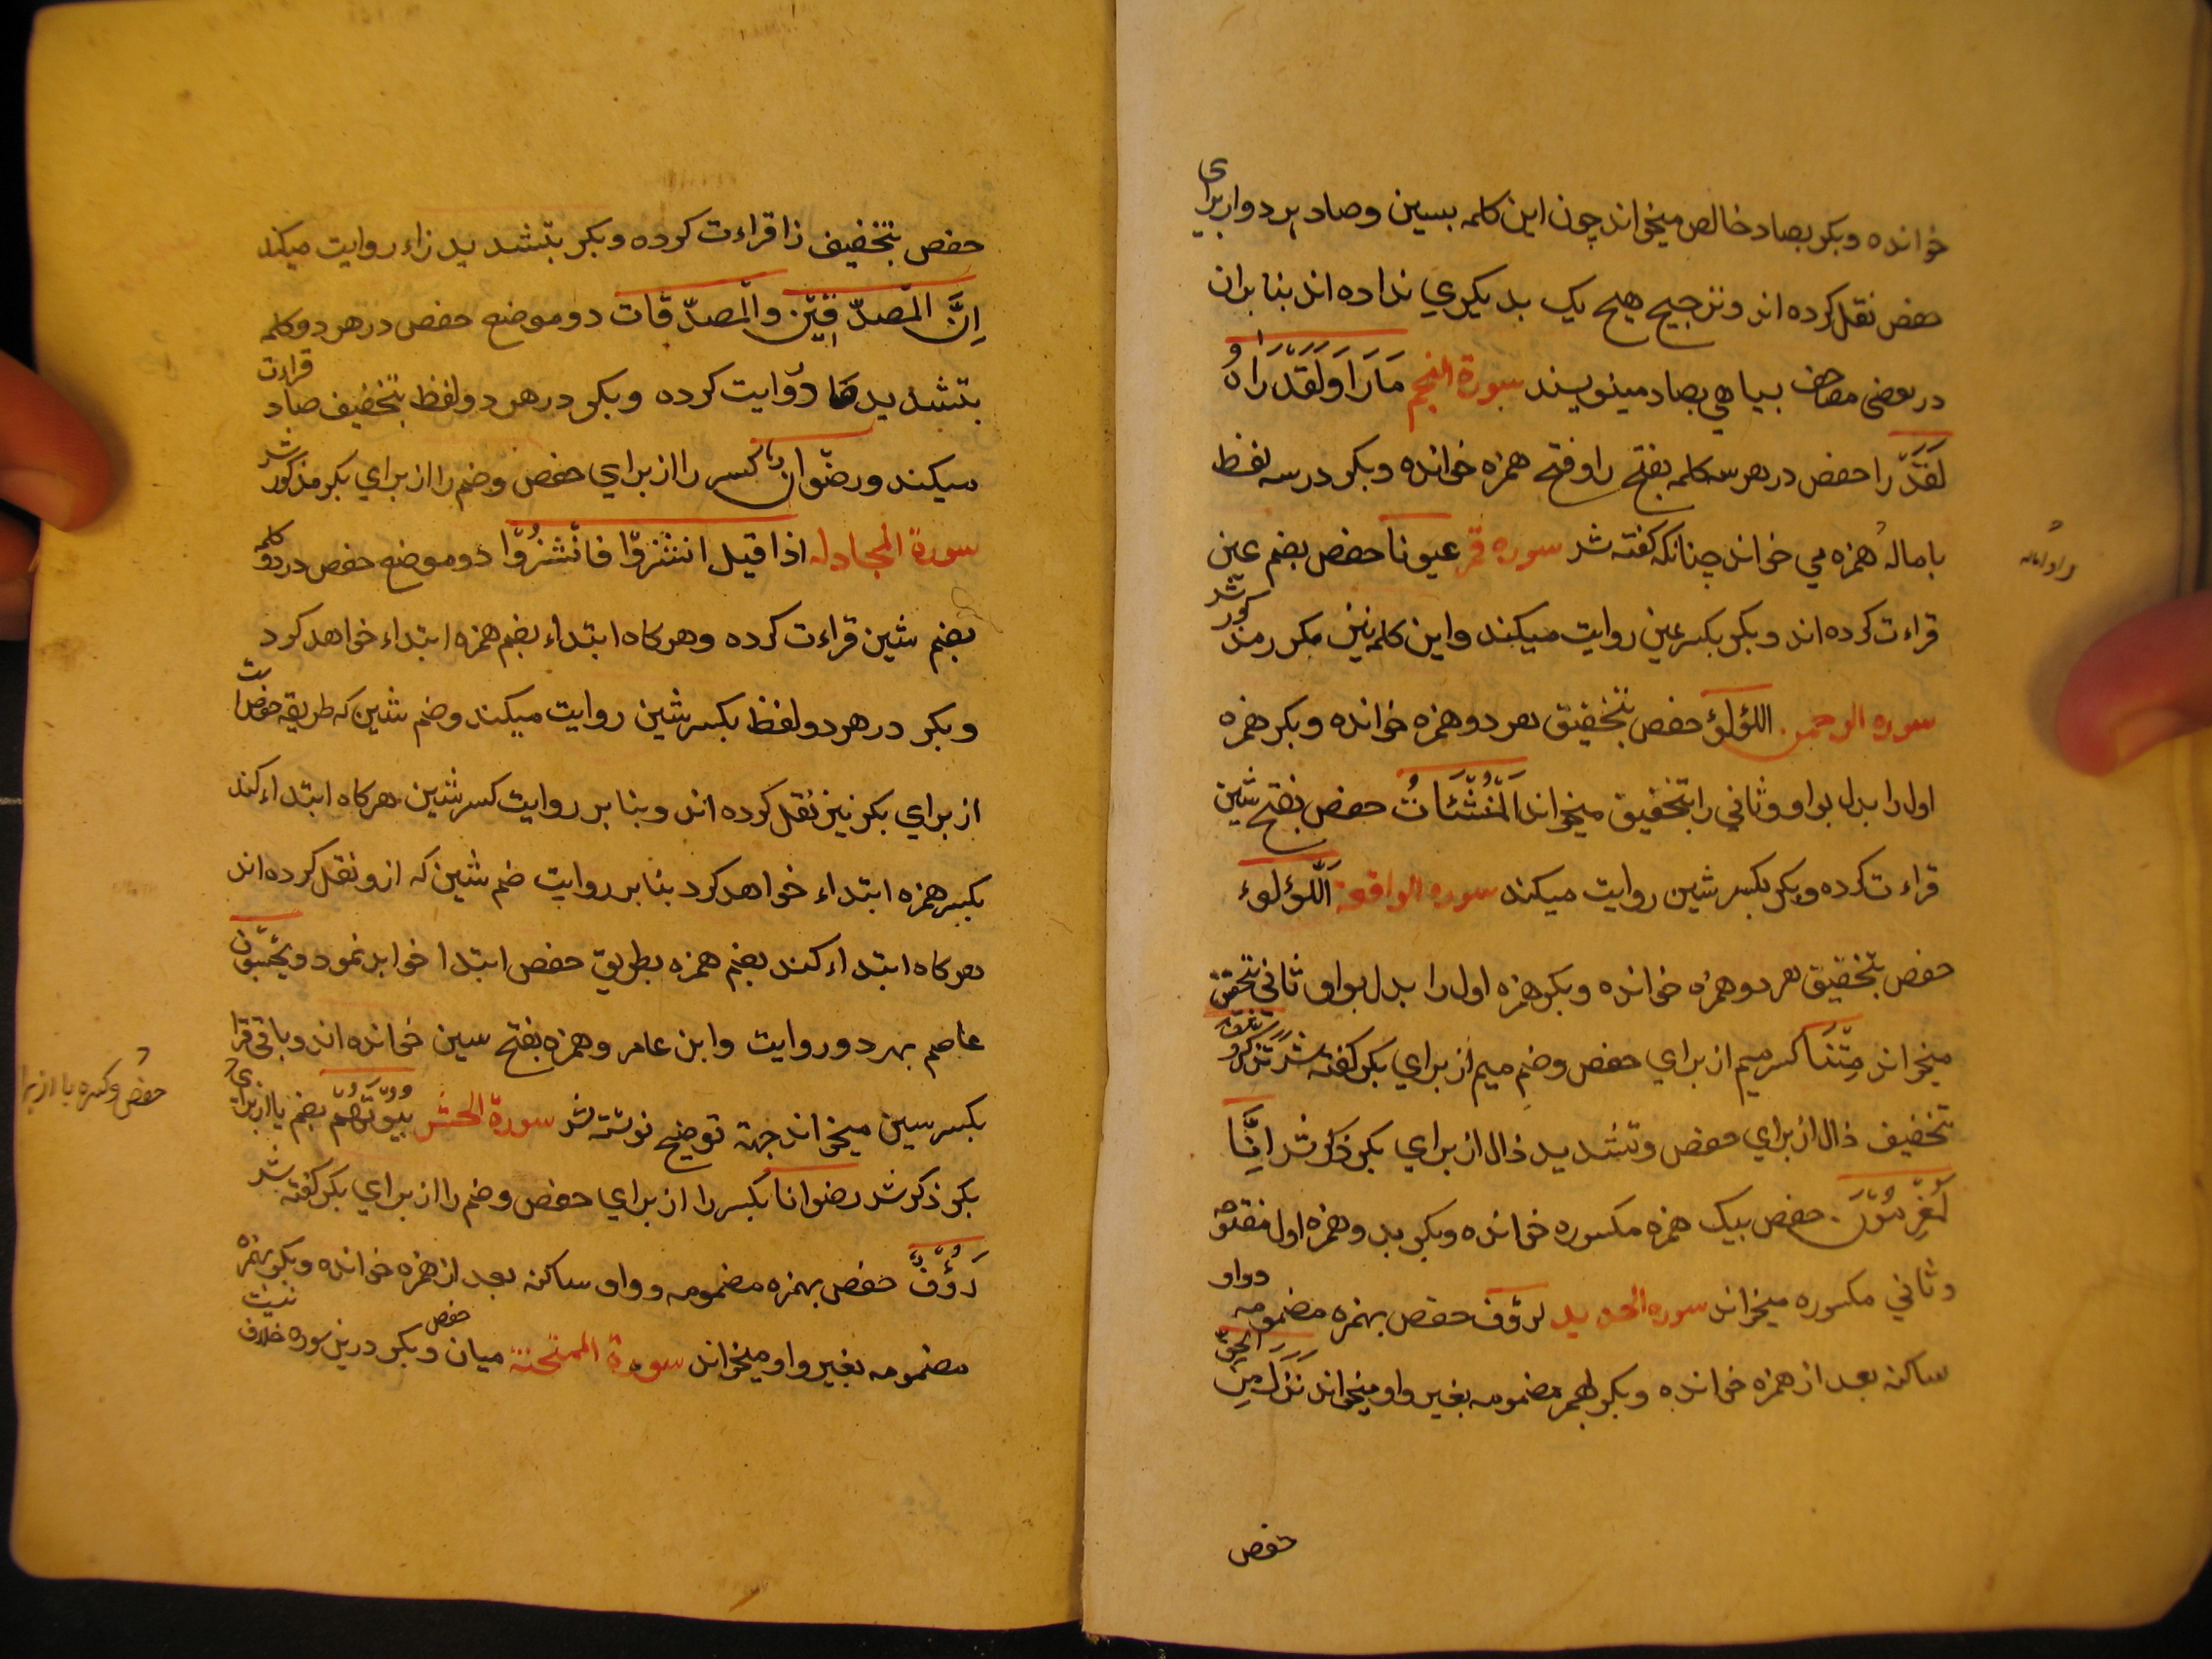 خوانده وبکر بصاد خالص میخواند چون این کلمه بسین وصاد هر دو از برای
حفص نقل کرده اند وترجیح هیچ یک بدیکری نداده اند بنابران
در بعضی مصاحف بسیاهی بصاد مینویسند سورة النجم مَارَاَ وَلَقَدْ رَاٰهُ
لَقَدْ رَا حفص در هر سه کلمه بفتح را وفتح همزه خوانده وبکر در سه لفظ
بامالهٔ همزه می خواند چنانکه کفته شد سوره قمر عیونا حفص بضم عین
قراءت کرده اند وبکر بکسر عین روایت میکند واین کلمه نیز مکرر مذکور شد
سوره الرحمن اللؤلؤ حفص بتحقیق هر دو همزه خوانده وبکر همزه
اول را بدل بواو وثانی را بتحقیق میخواند اَلْمُنْشَئَاتُ حفص بفتح شین
قراءت کرده وبکر بکسر شین روایت میکند سوره الواقعة اَللّؤلوء
حفص بتحقیق هر دو همزه خوانده وبکر همزه اول را بدل بواو ثانی بتحقیق
میخواند مِتْنَا کسر میم از برای حفص وضم میم از برای بکر کفته شد تذکرون
تخفیف ذال از برای حفص وتشدید ذال از برای بکر ذکر شد اِنَّا
لَمُغْرَمُوْنَ حفص بیک همزه مکسوره خوانده وبکر بدو همزه اول مفتوحه
وثانی مکسوره میخواند سوره الحدید لرؤف حفص بهمزه مضمومه وواو
ساکنه بعد از همزه خوانده وبکر بهمزه مضمومه بغیر واو میخواند نَزَلَ مِنَ الحق
حفص
را و اماله
حفص بتخفیف زا قراءت کرده وبکر بتشدید زاء روایت میکند
اِنَّ الْمُصَّدِّقِیْنَ والْمُصَّدِّقات دو موضع حفص در هر دو کلمه
بتشدید صاد روایت کرده وبکر در هر دو لفظ بتخفیف صاد قراءت
میکند ورضْوان کسر را از برای حفص وضم را از برای بکر مذکور شد
سورة المجادله اذا قیل انشُزوْا فانْشُزُوْا دو موضع حفص در دو کلمه
بضم شین قراءت کرده وهر کاه ابتداء بضم همزه ابتداء خواهد کرد
وبکر در هر دو لفظ بکسر شین روایت میکند وضم شین که طریقه حفص است
از برای بکر نیز نقل کرده اند وبنا بر روایت کسر شین هر کاه ابتداء کند
بکسر همزه ابتداء خواهد کرد بنا بر روایت ضم شین که ازو نقل کرده اند
هر کاه ابتداء کند بضم همزه بطریق حفص ابتدا خواهد نمود ویحسبون
عاصم بهر دو روایت وابن عامر وهمزه بفتح سین خوانده اند وباقی قرا
بکسر سین میخواند جهة توضیح نوشته شد سورة الحشر بُیُوْتَهُمْ بضم با از برای
بکر ذکر شد رضوانا بکسر را از برای حفص وضم را از برای بکر کفته شد
رَؤُفٌ حفص بهمزه مضمومه وواو ساکنه بعد از همزه خوانده وبکر بهمزه
مضمومه بغیر واو میخواند سورة الممتحنة میان حفص وبکر درین سوره خلاف نیست
حفص وکسره با از برا